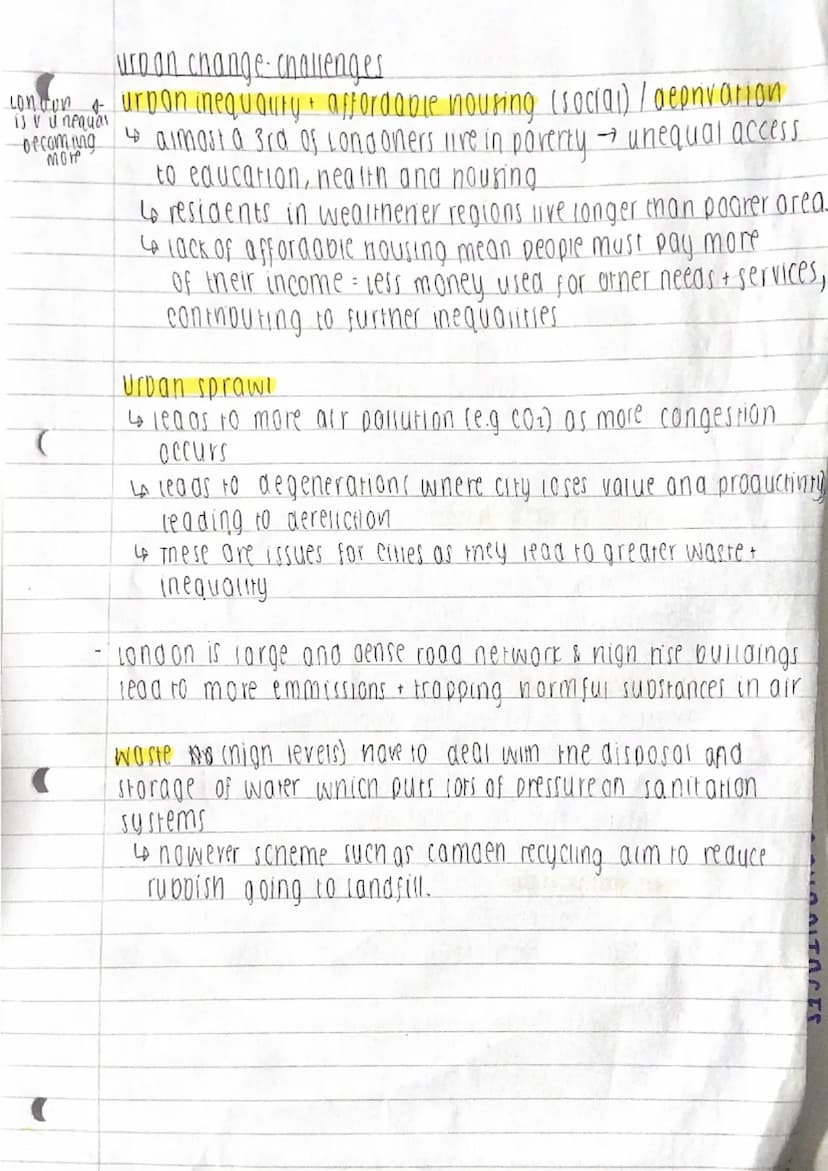 urban change - challenges
London & is v unequal becoming more
urban inequality + affordable housing (social) / deprivation
↳ almost a 3rd of Londoners live in poverty → unequal access
to education, health and housing
↳ residents in wealthener regions live longer than poorer area.
↳ lack of affordable housing mean people must pay more
of their income = less money used for other needs + services,
contributing to further inequalities
urban sprawl
↳ leads to more air pollution (e.g CO2) as more congestion
occurs
↳ leads to degeneration( where city loses value and productivity
leading to dereliction
↳ These are issues for cities as they lead to greater waste +
inequality
- London is large and dense road network & high rise buildings
lead to more emmissions + trapping harmful substances in air
waste (high levels) have to deal with the disposal and
storage of water which puts lots of pressure on sanitation
systems
↳ however scheme such as camden recycling aim to reduce
rubbish going to landfill.